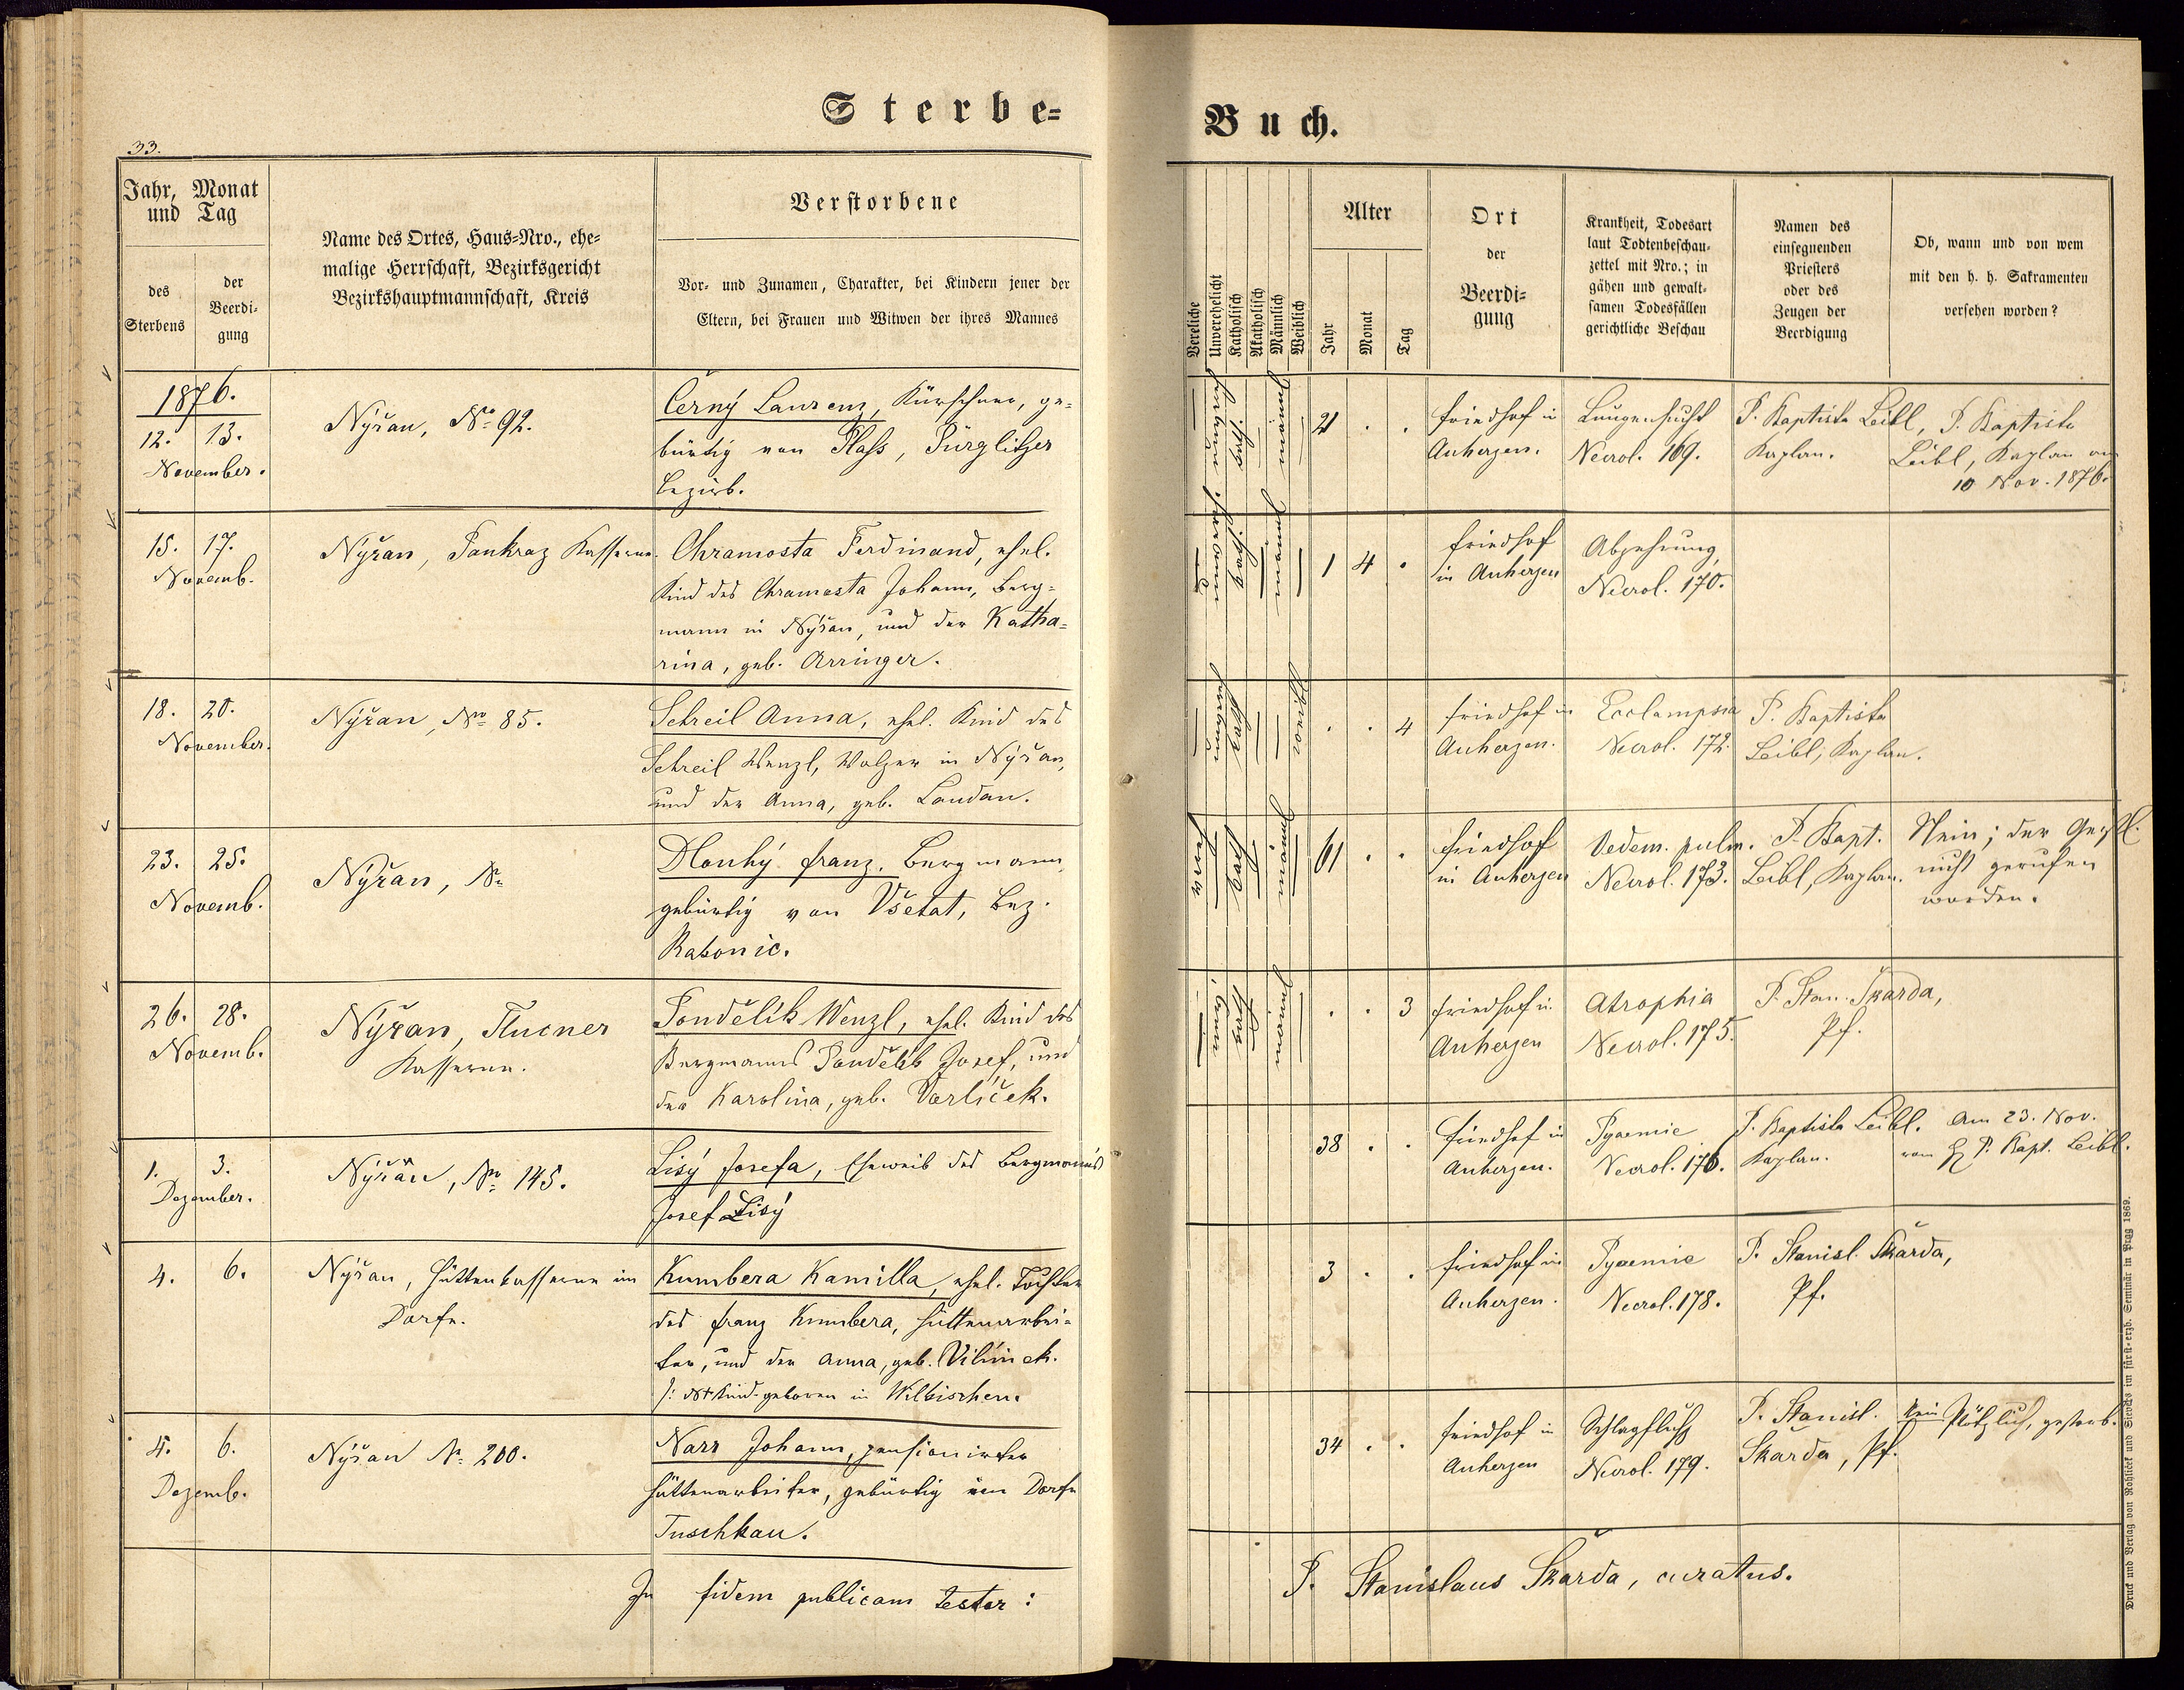 Sterbe=
Buch.
33.
Jahr, Monat
und Tag
des
Sterbens
der
Beerdi=
gung
Name des Ortes, Haus=Nro., ehe=
malige Herrschaft, Bezirksgericht
Bezirkshauptmannschaft, Kreis
Verstorbene
Vor= und Zunamen, Charakter, bei Kindern jener der
Eltern, bei Frauen und Witwen der ihres Mannes
Vereliche
Unverehelicht
Katholisch
Akatholisch
Männlich
Weiblich
Alter
Jahr
Monat
Tag
Ort
der
Beerdi=
gung
Krankheit, Todesart
laut Todtenbeschau=
zettel mit Nro.; in
gähen und gewalt=
samen Todesfällen
gerichtliche Beschau
Namen des
einsegnenden
Priesters
oder des
Zeugen der
Beerdigung
Ob, wann und von wem
mit den h. h. Sakramenten
versehen worden?
1876.
12. 13.
November.
Nýřan, No 92.
Černý Laurenz, Kürschner, ge=
bürtig von Plass, Pürglitzer
Bezirk.
21 . .
Friedhof in
Auherzen.
Lungensucht
Necrol. 169.
P. Baptista Leibl,
Kaplan.
P. Baptista
Leibl, Kaplan am
10 Nov. 1876.
15. 17.
Novemb.
Nýřan, Pankraz Kasserne.
Chramosta Ferdinand, ehel.
Kind des Chramosta Johann, Berg=
mann in Nýřan, und der Katha=
rina, geb. Arringer.
1 4 .
Friedhof
in Auherzen
Abzehrung,
Necrol. 170.
18. 20.
November.
Nýřan, No 85.
Schreil Anna, ehel. Kind des
Schreil Wenzl, Walzer in Nýřan,
und der Anna, geb. Laudan.
. . 4
Friedhof in
Auherzen.
Ecclampsia
Necrol. 172.
P. Baptista
Leibl, Kaplan.
23. 25.
Novemb.
Nýřan, No
Dlouhý Franz, Bergmann,
gebürtig von Všetat, Bez.
Rakonic.
61 . .
Friedhof
in Auherzen
Oedem. pulm.
Necrol. 173.
P. Bapt.
Leibl, Kaplan.
Nein; der Geistl.
nicht gerufen
worden.
26. 28.
Novemb.
Nýřan, Tlucner
Kasserne.
Pondělik Wenzl, ehel. Kind des
Bergmanns Pondělik Josef, und
der Karolina, geb. Vorlíček.
. . 3
Friedhof in
Auherzen
Atrophia
Necrol. 175.
P. Stan. Škarda,
Pf.
1. 3.
Dezember.
Nýřan, No 145.
Lisý Josefa, Eheweib des Bergmanns
Josef Lisý
38 . .
Friedhof in
Auherzen.
Pyaemie
Necrol. 176.
P. Baptista Leibl.
Kaplan.
Am 23. Nov.
von H P. Bapt. Leibl.
4. 6.
Nýřan, Hüttenkasserne im
Dorfe.
Kumbera Kamilla, ehel. Tochter
des Franz Kumbera, Hüttenarbei=
ter, und der Anna, geb. Vilímek.
geboren in Wilkischen.
3 . .
Friedhof in
Auherzen.
Pyaemie
Necrol. 178.
P. Stanisl. Škarda,
Pf.
4. 6.
Dezemb.
Nýřan No 200.
Narr Johann, pensionirter
Hüttenarbeiter, gebürtig im Dorfe
Tuschkau.
34 . .
Friedhof in
Auherzen
Schlagfluß
Necrol. 179.
P. Stanisl.
Škarda, Pf.
Nein Plötzlich gestorb.
In fidem publicam testor:
P. Stanislaus Škarda, curatus.
Druck und Verlag von Rohliček und Sievers im fürst=erzb. Seminär in Prag 1869.